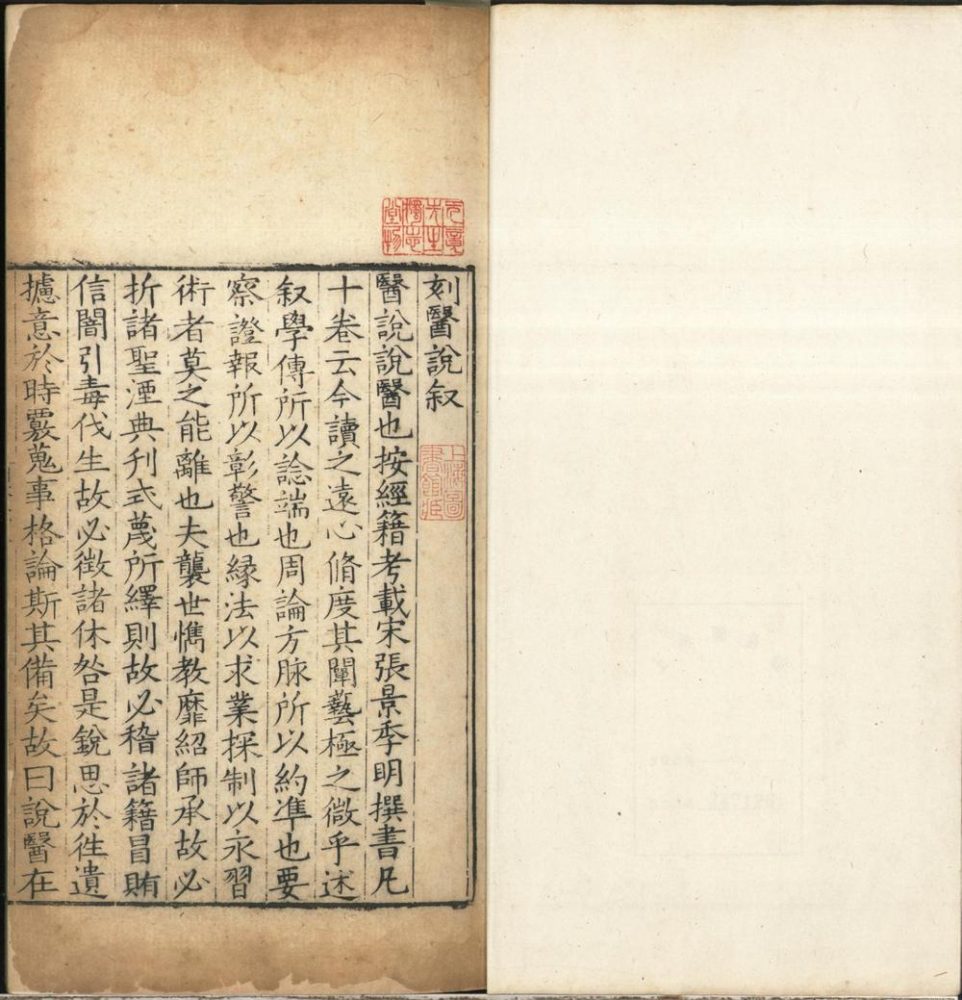 刻醫說叙
醫說說醫也按經籍考載宋張景季明撰書凡
十卷云今讀之遠心脩度其闡藝極之微乎述
叙學傳所以諗端也周論方脉所以約準也要
察證報所以彰警也緣法以求業探制以永習
術者莫之能離也夫襲世懏教靡紹師承故必
折諸聖湮典刋式蔑所繹則故必稽諸籍冒賄
信闇引毒伐生故必徵諸休咎是銳思於徃遺
攄意於時覈蒐事格論斯其備矣故曰說醫在
上海圖書館藏